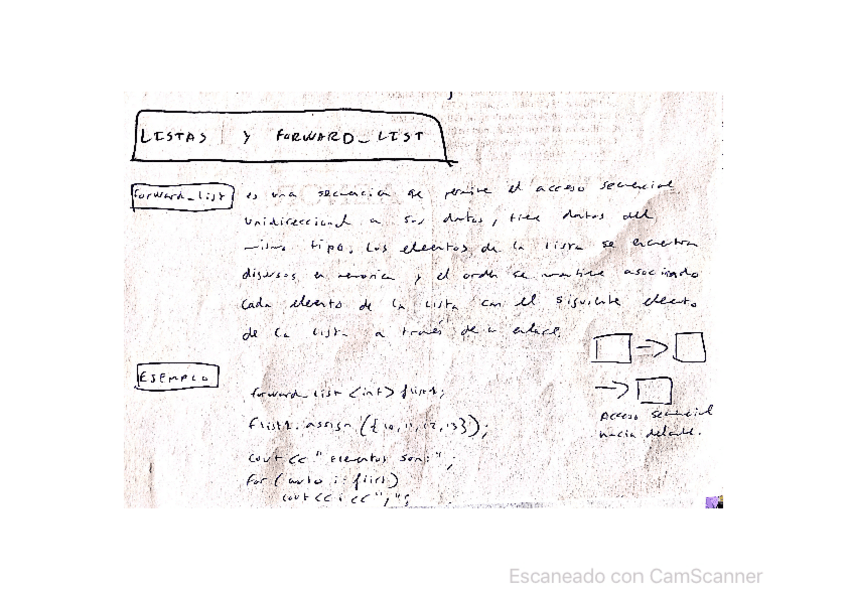 LISTAS Y FORWARD_LIST
forward_list es una secuencia que permite el acceso secuencial
unidireccional a sus datos, tiene datos del
mismo tipo. Los elementos de la lista se encuentran
dispersos en memoria y el orden se mantiene asociando
cada elemento de la lista con el siguiente elemento
de la lista a través de un enlace.
EJEMPLO
forward_list <int> flist1;
flist1.assign({10,11,12,13});
cout << "elementos son:";
for (auto i: flist1)
cout << i << ",";
Acceso secuencial
hacia delante.
Escaneado con CamScanner